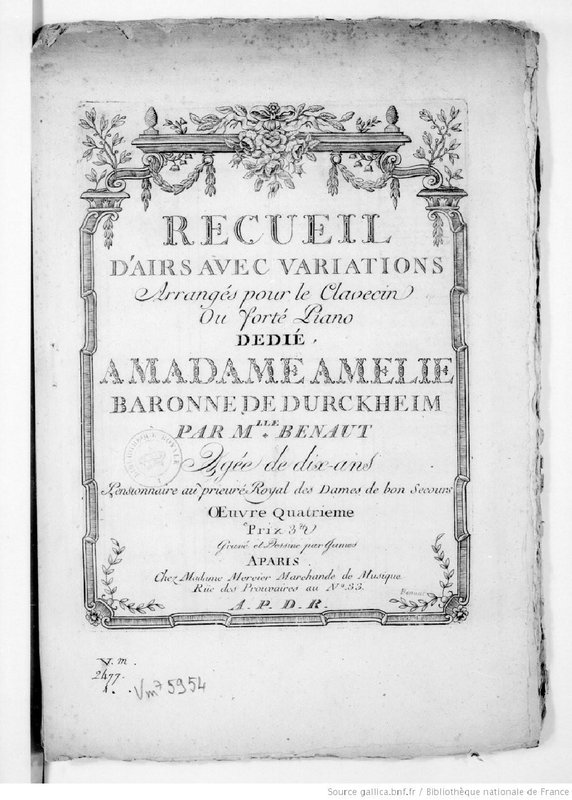 RECUEIL
D'AIRS AVEC VARIATIONS
Arrangés pour le Clavecin
Ou Forté Piano
DEDIÉ,
A MADAME AMELIE
BARONNE DE DURCKHEIM
PAR M.LLE BENAUT
Agée de dix-ans
Pensionnaire au prieuré Royal des Dames de bon Secours
Œuvre Quatrieme
Prix 3tt
Gravé et Dessiné par
A PARIS
Chez Madame Mercier Marchande de Musique
Rue des Prouvaires au No. 33.
A. P. D. R.
BIBLIOTHEQUE ROYALE
Benaut
V.m
2477.
Vm7 5954
Source gallica.bnf.fr / Bibliothèque nationale de France